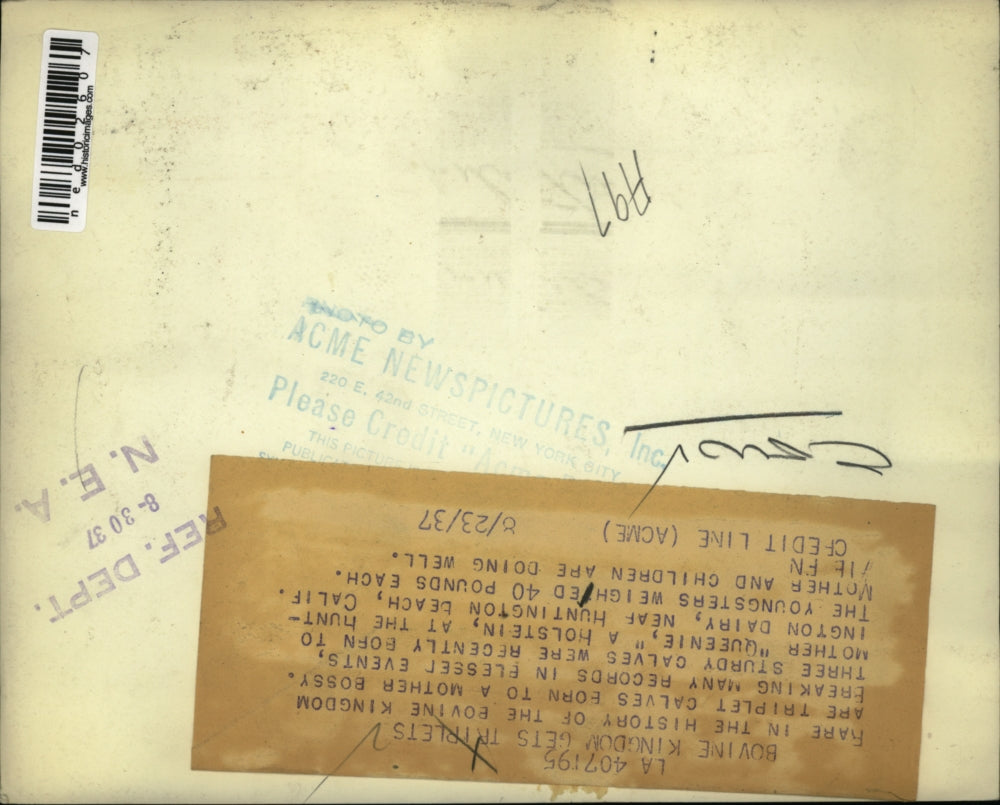 ned02607
www.historicimages.com
A97
PHOTO BY
ACME NEWSPICTURES, Inc.
220 E. 42nd STREET, NEW YORK CITY
Please Credit "Acm
THIS PICTURE
PUBLIC
REF. DEPT.
8-30 37
N. E. A.
Cows
LA 407195
BOVINE KINGDOM GETS TRIPLETS
RARE IN THE HISTORY OF THE BOVINE KINGDOM
ARE TRIPLET CALVES BORN TO A MOTHER BOSSY.
BREAKING MANY RECORDS IN BLESSEF EVENTS,
THREE STURDY CALVES WERE RECENTLY BORN TO
MOTHER "QUEENIE", A HOLSTEIN, AT THE HUNT-
INGTON DAIRY, NEAR HUNTINGTON BEACH, CALIF.
THE YOUNGSTERS WEIGH/ED 40 POUNDS EACH.
MOTHER AND CHILDREN ARE DOING WELL.
CREDIT LINE (ACME) 8/23/37